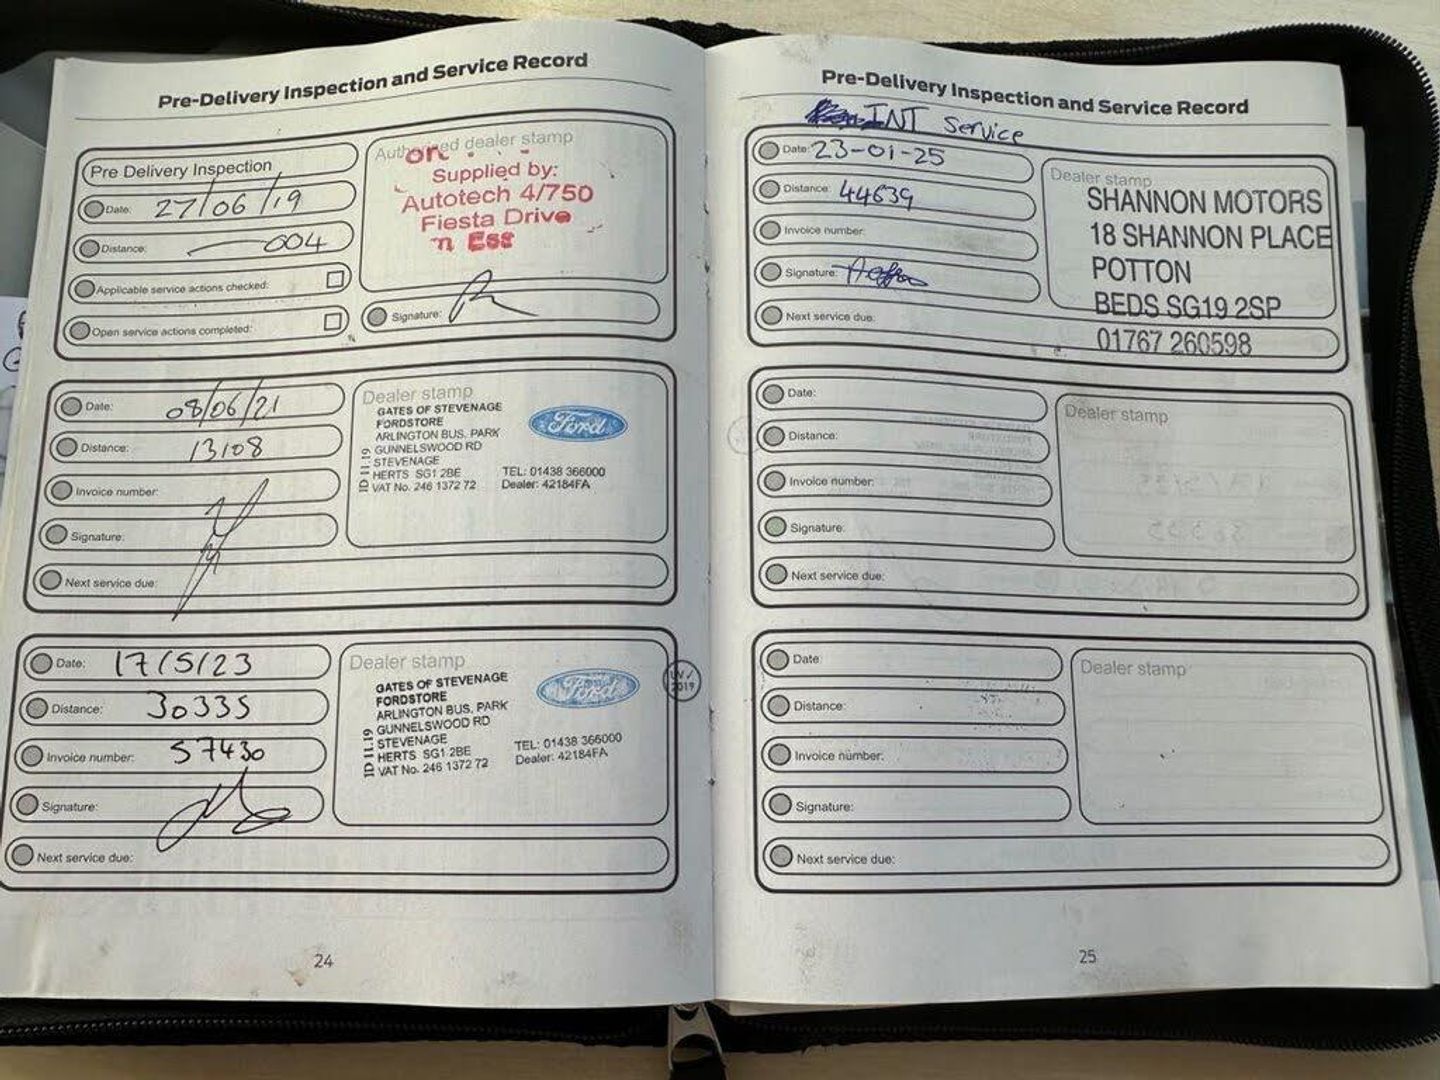 Pre-Delivery Inspection and Service Record
Pre Delivery Inspection
Date: 27/06/19
Distance: 004
Applicable service actions checked:
Open service actions completed:
Authorised dealer stamp
on
Supplied by:
Autotech 4/750
Fiesta Drive
n Ess
Signature:
Date: 08/06/21
Distance: 13108
Invoice number:
Signature:
Next service due:
Dealer stamp
GATES OF STEVENAGE
FORDSTORE
ARLINGTON BUS. PARK
GUNNELSWOOD RD
STEVENAGE
HERTS SG1 2BE
VAT No. 246 1372 72
ID 11.19
Ford
TEL: 01438 366000
Dealer: 42184FA
Date: 17/5/23
Distance: 30335
Invoice number: 57430
Signature:
Next service due:
Dealer stamp
GATES OF STEVENAGE
FORDSTORE
ARLINGTON BUS. PARK
GUNNELSWOOD RD
STEVENAGE
HERTS SG1 2BE
VAT No. 246 1372 72
ID 11.19
Ford
TEL: 01438 366000
Dealer: 42184FA
UV✓
2019
24
Pre-Delivery Inspection and Service Record
INT Service
Date: 23-01-25
Distance: 44639
Invoice number:
Signature:
Next service due:
Dealer stamp
SHANNON MOTORS
18 SHANNON PLACE
POTTON
BEDS SG19 2SP
01767 260598
Date:
Distance:
Invoice number:
Signature:
Next service due:
Dealer stamp
Date:
Distance:
Invoice number:
Signature:
Next service due:
Dealer stamp
25